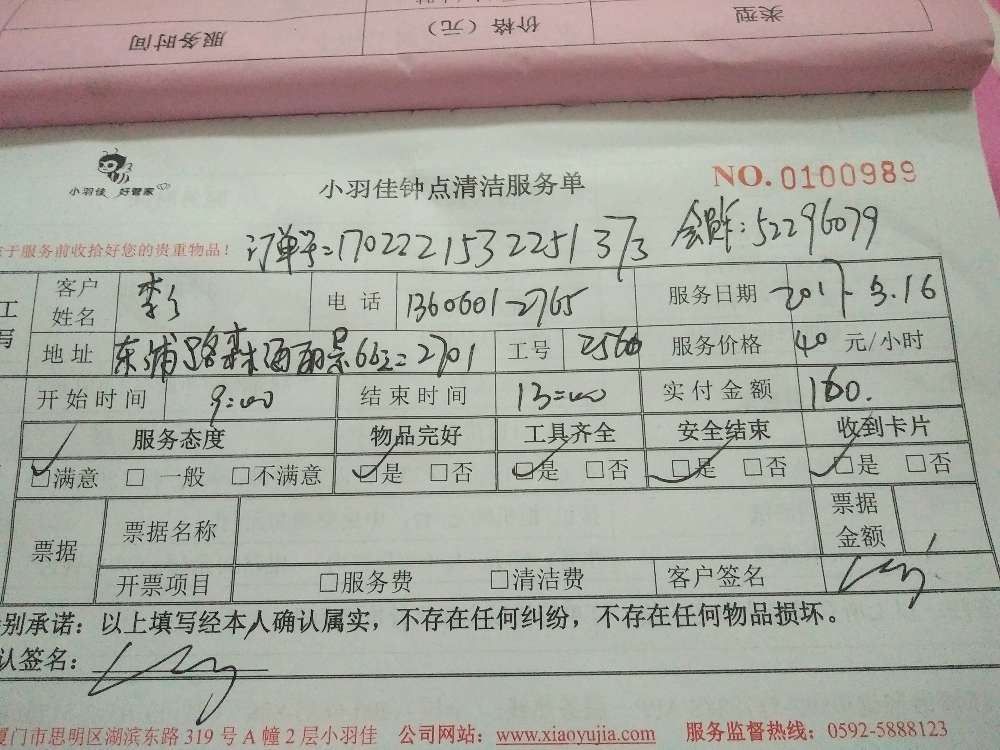 服务时间 价格（元） 类型
小羽佳 好管家
小羽佳钟点清洁服务单
NO. 0100989
于服务前收拾好您的贵重物品！
订单号:170222153225137/3 会员卡:52296079
客户姓名 李 电话 13606012765 服务日期 2017.3.16
地址 东浦路森海丽景66#2701 工号 2560 服务价格 40 元/小时
开始时间 9:00 结束时间 13:00 实付金额 160.
服务态度 物品完好 工具齐全 安全结束 收到卡片
□满意 □一般 □不满意 □是 □否 □是 □否 □是 □否 □是 □否
票据 票据名称 票据金额
开票项目 □服务费 □清洁费 客户签名
别承诺：以上填写经本人确认属实，不存在任何纠纷，不存在任何物品损坏。
认签名：
厦门市思明区湖滨东路 319 号 A 幢 2 层小羽佳 公司网站：www.xiaoyujia.com 服务监督热线：0592-5888123